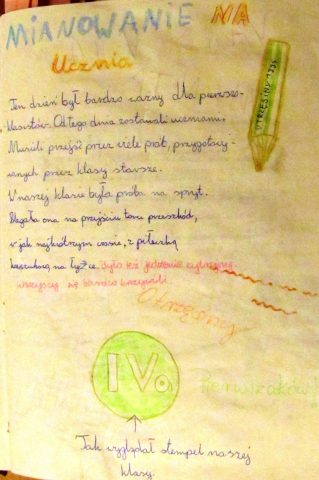 MIANOWANIE NA
Ucznia
OTRZĘSINY 1996
Ten dzień był bardzo ważny dla pierwszo-
klasistów. Od tego dnia zostawali uczniami.
Musieli przejść przez wiele prób, przygotowy-
wanych przez klasy starsze.
W naszej klasie była próba na spryt.
Biegała ona na przejściu toru przeszkód,
w jak najkrótszym czasie, z piłeczką
kauczukową na łyżce. Było też jedzenie cytryny
wszyscy się bardzo krzywili.
Otrzęsiny
IVa
Pierwszaków!
Jak wyglądał stempel naszej
klasy.